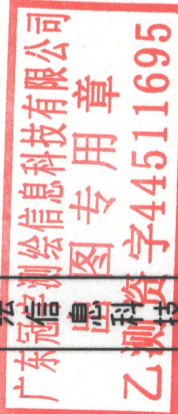 广东冠宇测绘信息科技有限公司
出图专用章
乙测资字44511695
信息科技